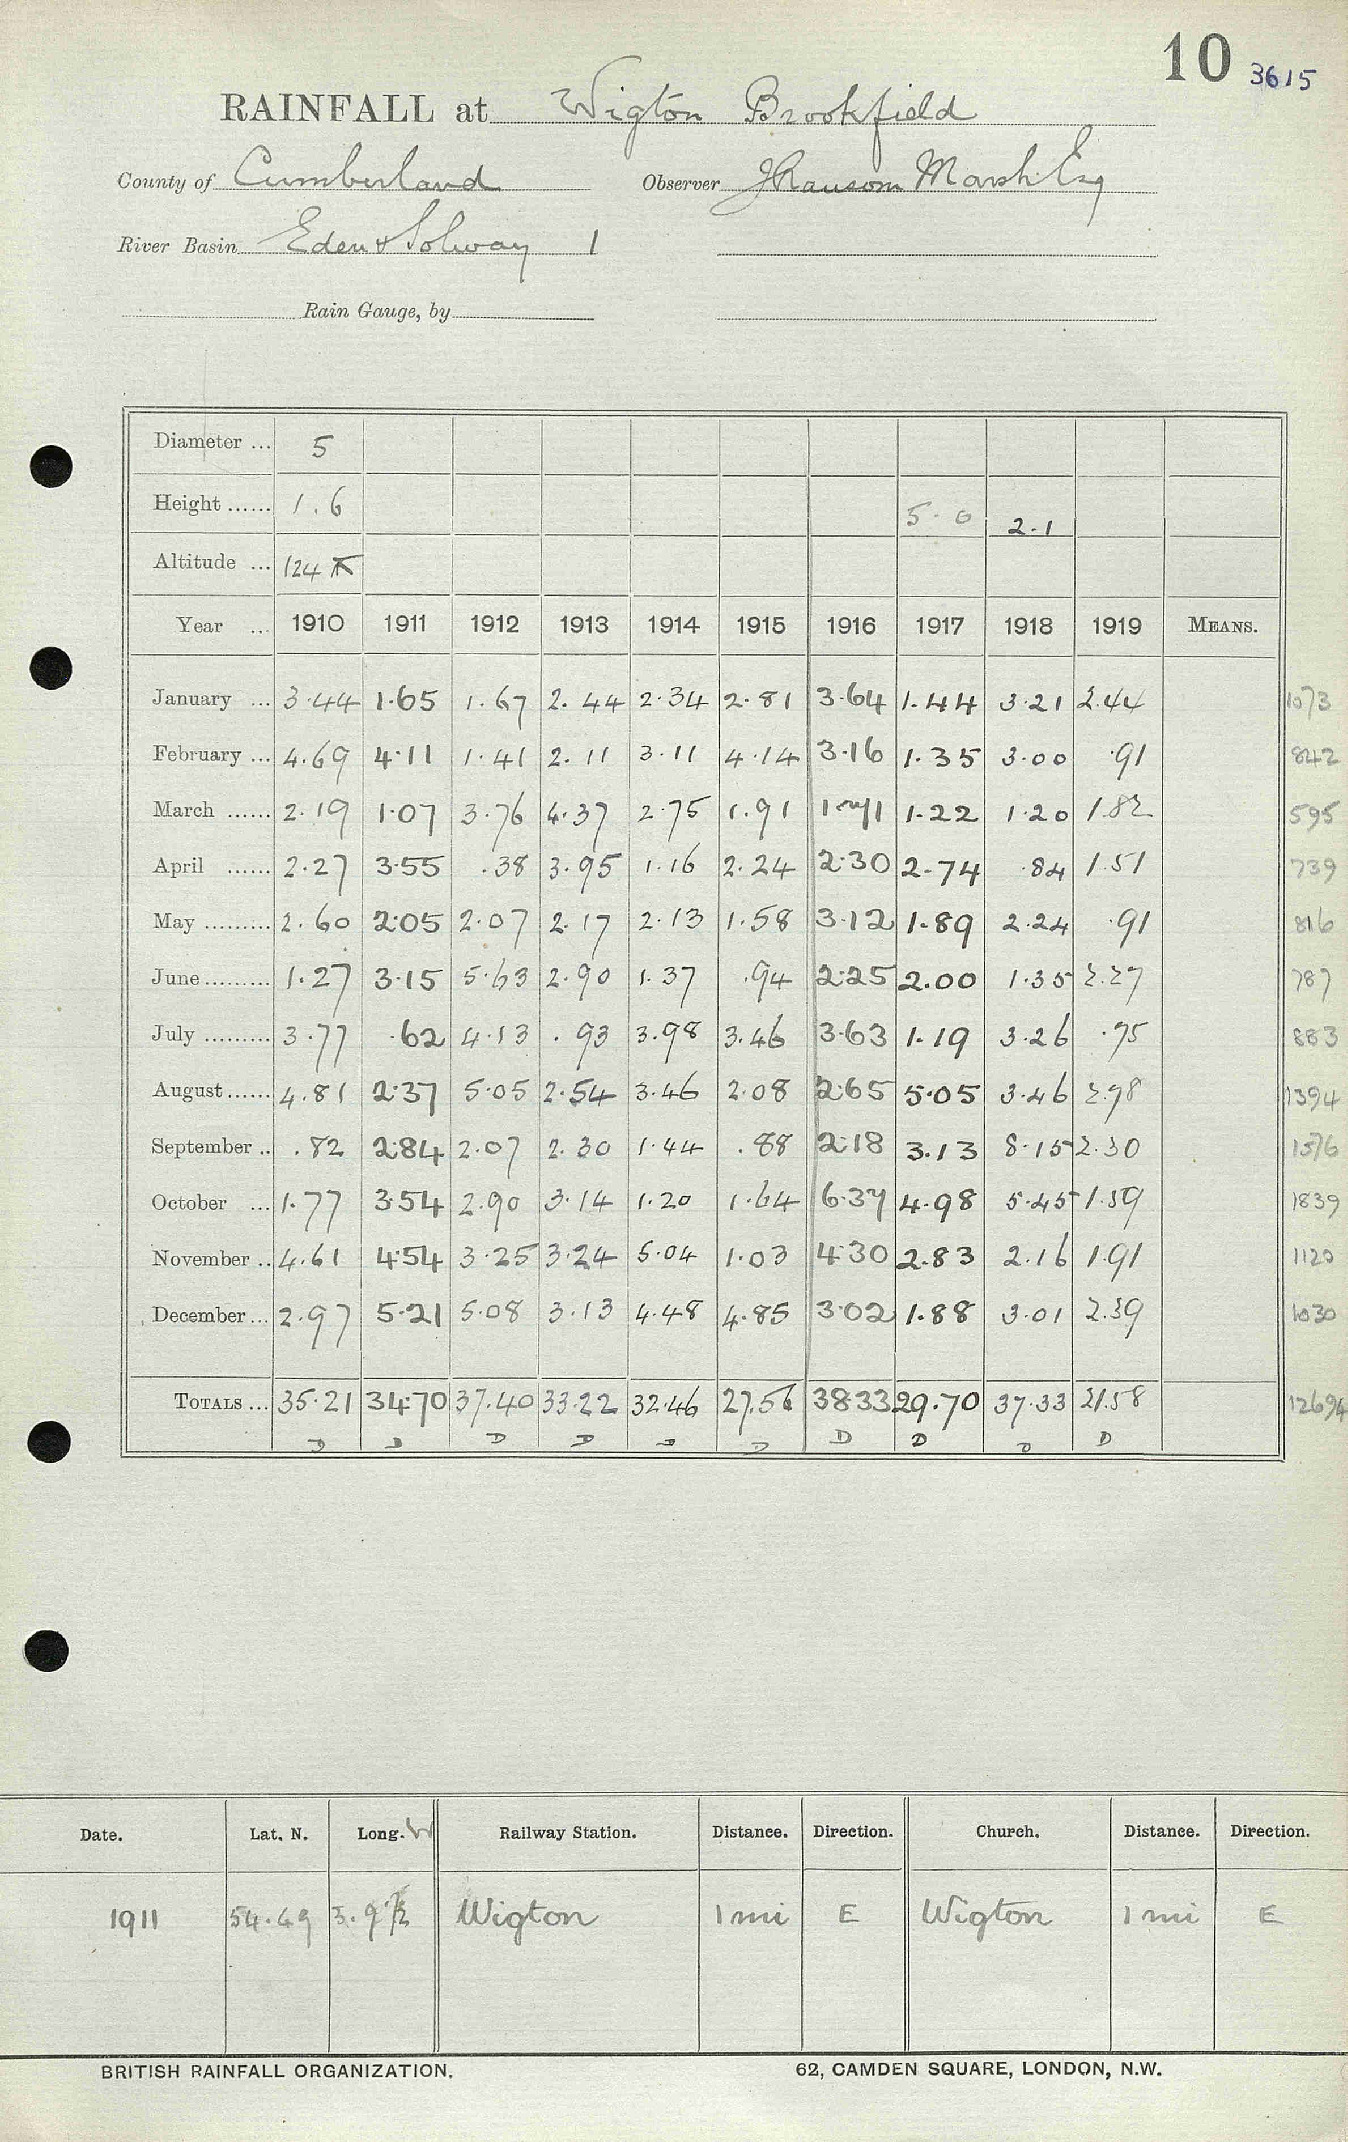 10 3615
RAINFALL at Wigton Brookfield
County of Cumberland Observer J Ransom Marsh Esq
River Basin Eden & Solway 1
Rain Gauge, by
Diameter ... 5
Height ...... 1.6 5.0 2.1
Altitude ... 124 ft
Year ... 1910 1911 1912 1913 1914 1915 1916 1917 1918 1919 MEANS.
January ... 3.44 1.65 1.67 2.44 2.34 2.81 3.64 1.44 3.21 2.44 1073
February ... 4.69 4.11 1.41 2.11 3.11 4.14 3.16 1.35 3.00 .91 842
March ...... 2.19 1.07 3.76 4.37 2.75 1.91 1.71 1.22 1.20 1.82 595
April ...... 2.27 3.55 .38 3.95 1.16 2.24 2.30 2.74 .84 1.51 739
May ......... 2.60 2.05 2.07 2.17 2.13 1.58 3.12 1.89 2.24 .91 816
June ......... 1.27 3.15 5.63 2.90 1.37 .94 2.25 2.00 1.35 2.27 787
July ......... 3.77 .62 4.13 .93 3.98 3.46 3.63 1.19 3.26 .75 883
August ...... 4.81 2.37 5.05 2.54 3.46 2.08 2.65 5.05 3.46 2.98 1394
September .. .82 2.84 2.07 2.30 1.44 .88 2.18 3.13 8.15 2.30 1576
October ... 1.77 3.54 2.90 3.14 1.20 1.64 6.37 4.98 5.45 1.59 1839
November .. 4.61 4.54 3.25 3.24 5.04 1.03 4.30 2.83 2.16 1.91 1120
December ... 2.97 5.21 5.08 3.13 4.48 4.85 3.02 1.88 3.01 2.39 1030
TOTALS ... 35.21 34.70 37.40 33.22 32.46 27.56 38.33 29.70 37.33 21.58 12694
D D D D D D D D D D
Date. Lat. N. Long. W Railway Station. Distance. Direction. Church. Distance. Direction.
1911 54.49 3.9½ Wigton 1 mi E Wigton 1 mi E
BRITISH RAINFALL ORGANIZATION. 62, CAMDEN SQUARE, LONDON, N.W.